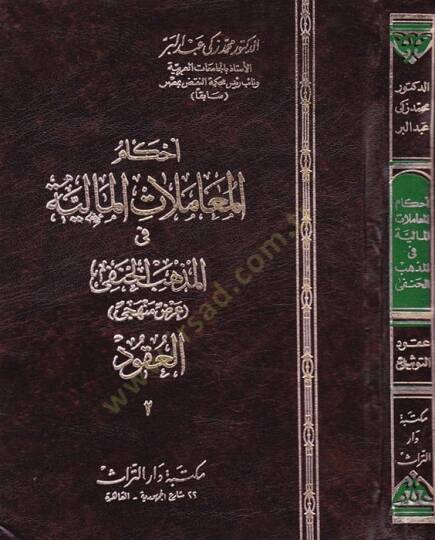 الدكتور محمد زكى عبد البر
الأستاذ بالجامعات العربية
ونائب رئيس محكمة النقض بمصر
(سابقا)
أحكام
المعاملات المالية
فى
المذهب الحنفى
(عرض منهجى)
العقود
٢
مكتبة دار التراث
٢٢ شارع الجمهورية - القاهرة
الدكتور
محمد زكى
عبد البر
أحكام
المعاملات
المالية
فى
المذهب
الحنفى
عقود
التوثيق
مكتبة
دار
التراث